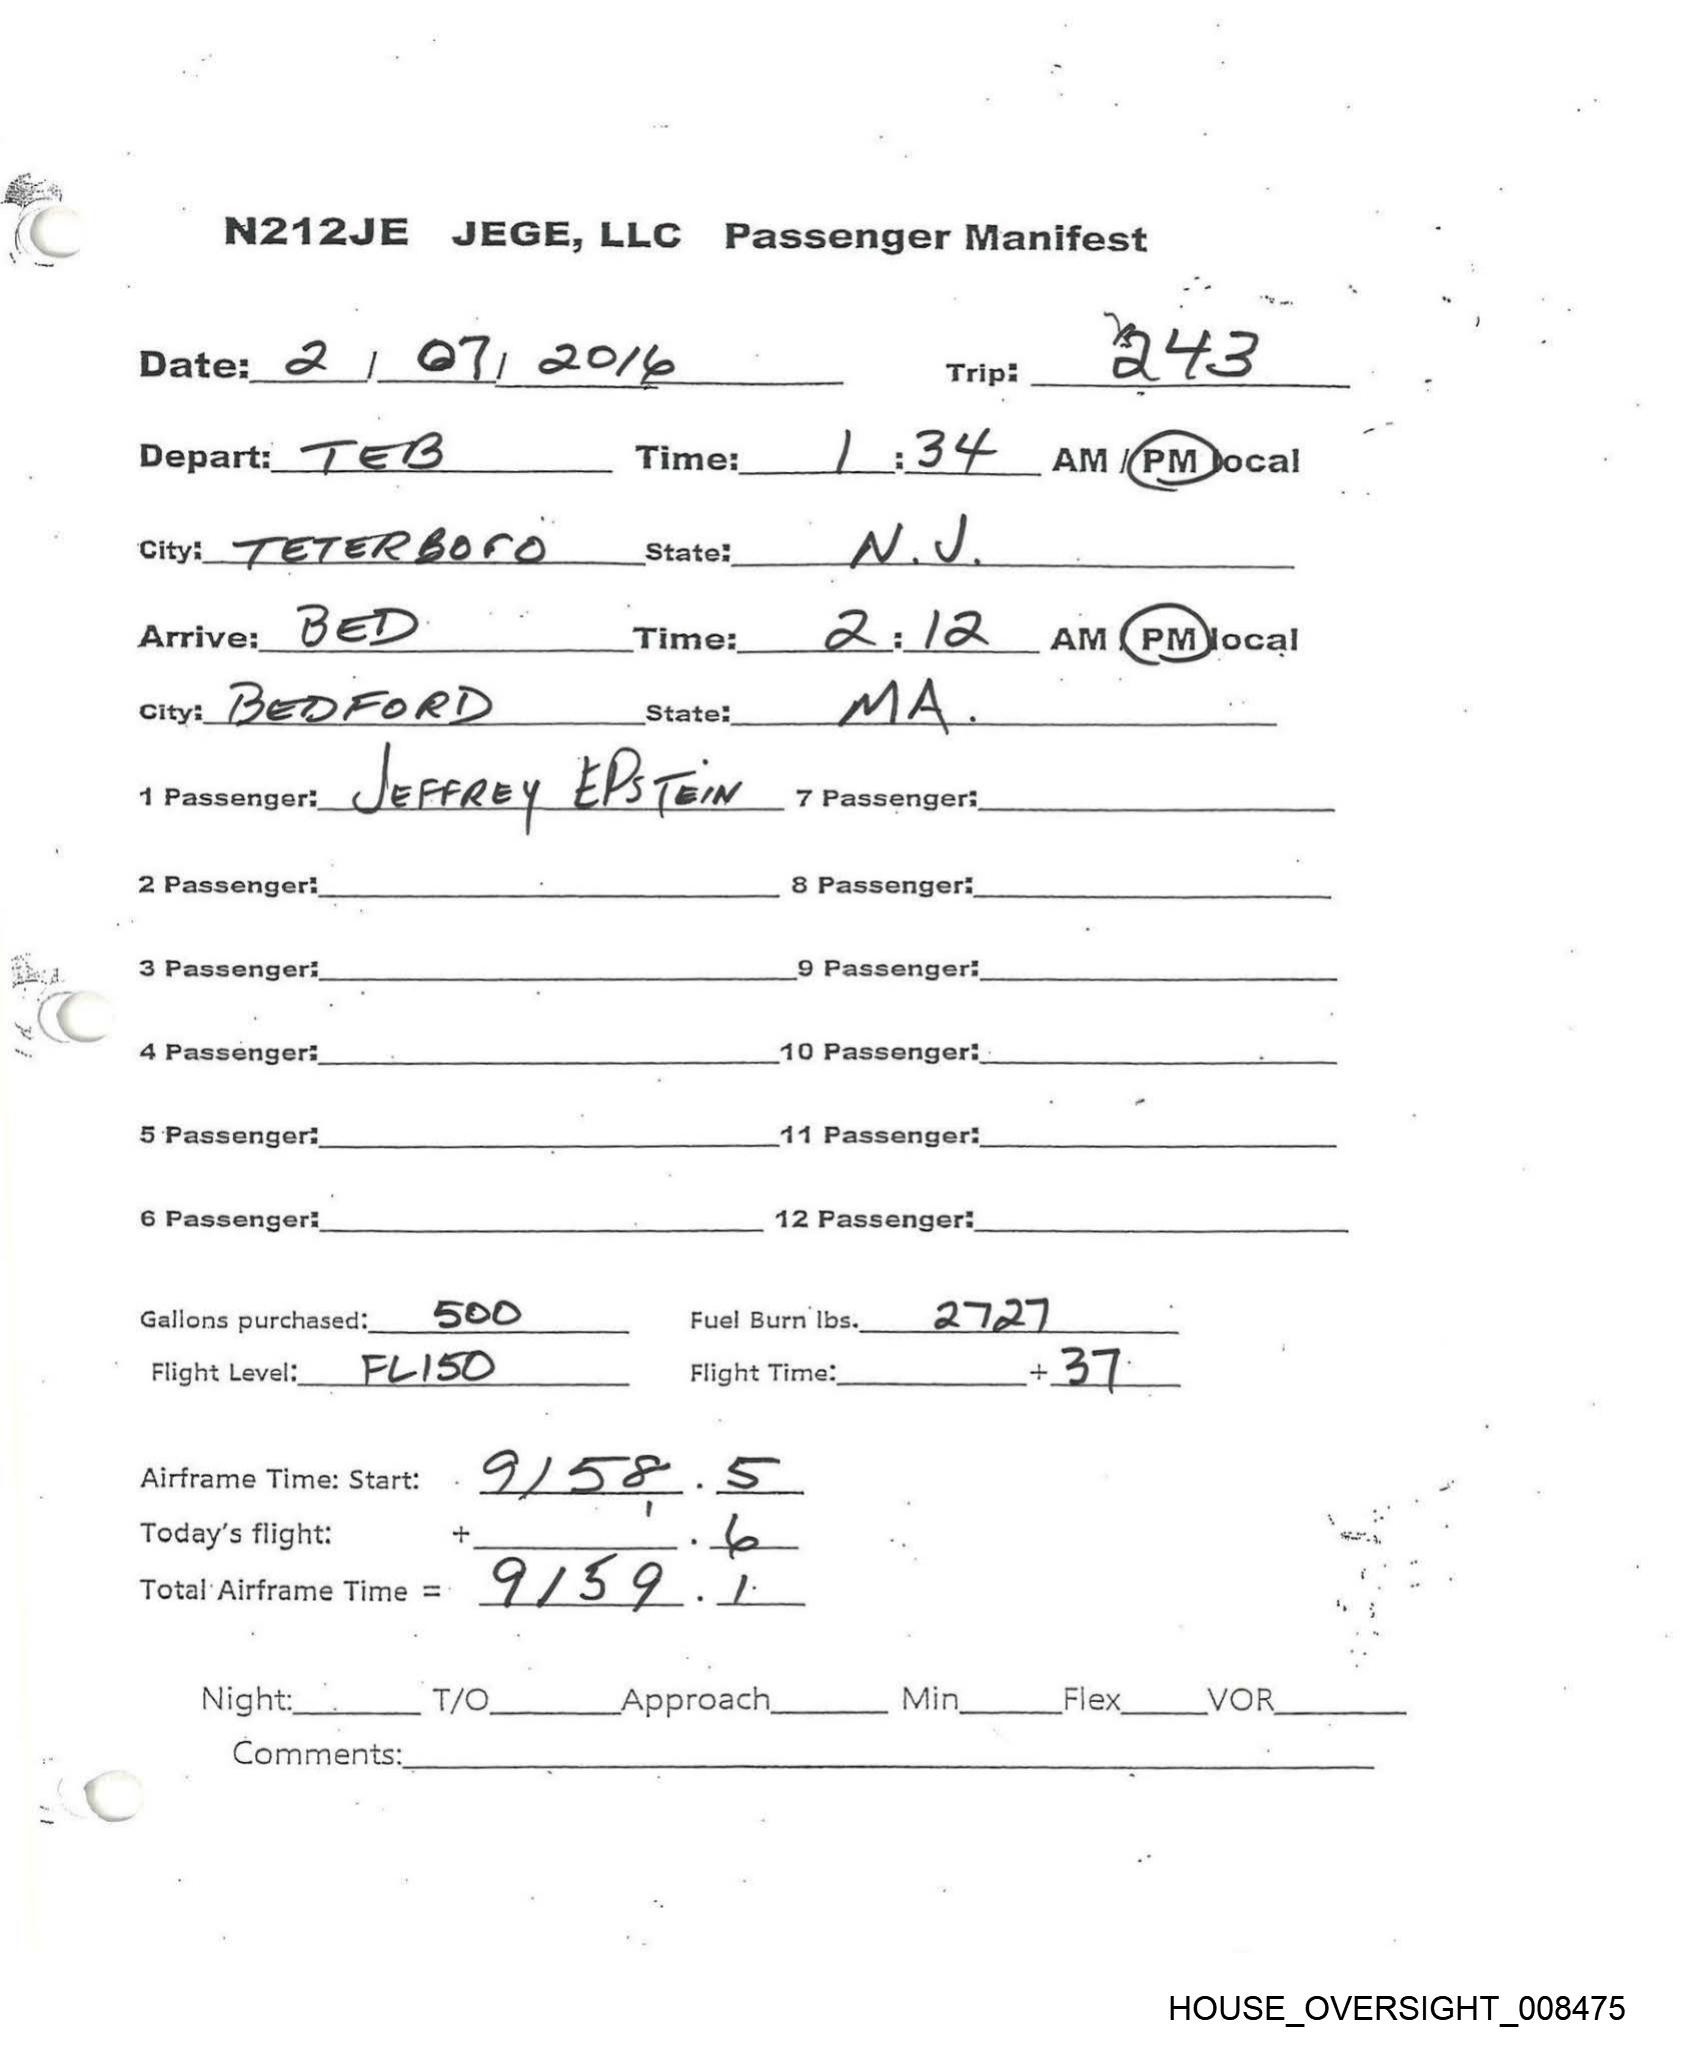 N212JE JEGE, LLC Passenger Manifest
Date: 2 / 07 / 2016 Trip: 243
Depart: TEB Time: 1 : 34 AM / PM local
City: TETERBORO State: N.J.
Arrive: BED Time: 2 : 12 AM PM local
City: BEDFORD State: MA.
1 Passenger: JEFFREY EPSTEIN 7 Passenger:
2 Passenger: 8 Passenger:
3 Passenger: 9 Passenger:
4 Passenger: 10 Passenger:
5 Passenger: 11 Passenger:
6 Passenger: 12 Passenger:
Gallons purchased: 500 Fuel Burn lbs. 2727
Flight Level: FL150 Flight Time: + 37
Airframe Time: Start: 9158 . 5
Today's flight: + . 6
Total Airframe Time = 9159 . 1
Night: T/O Approach Min Flex VOR
Comments:
HOUSE_OVERSIGHT_008475